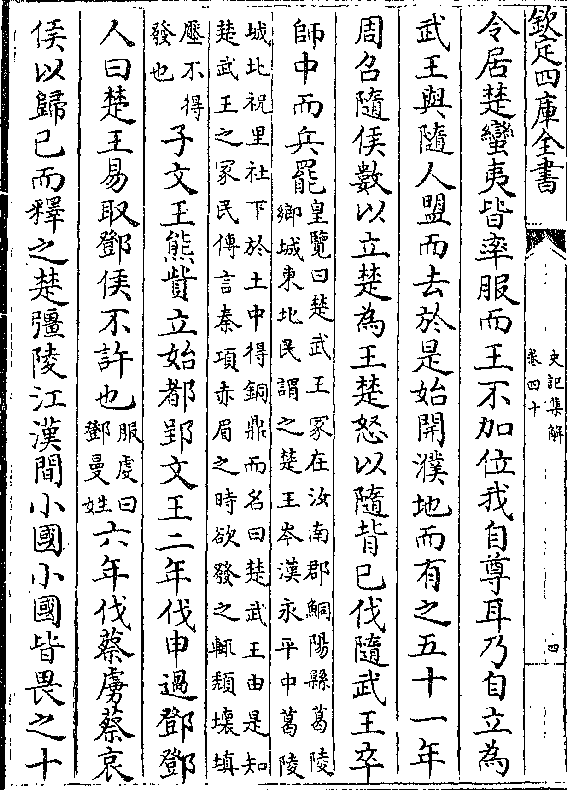 欽定四庫全書
史記集解
卷四十
四
令居楚蠻夷皆率服而王不加位我自尊耳乃自立為
武王與隨人盟而去於是始開濮地而有之五十一年
周召隨侯數以立楚為王楚怒以隨背已伐隨武王卒
師中而兵罷皇覽曰楚武王冢在汝南郡鮦陽縣葛陂
鄉城東北民謂之楚王岑漢永平中葛陵
城北祝里社下於土中得銅鼎而名曰楚武王由是知
楚武王之冢民傳言秦項赤眉之時欲發之輒頹壞填
壓不得
發也子文王熊貲立始都郢文王二年伐申過鄧鄧
人曰楚王易取鄧侯不許也服虔曰
鄧曼姓六年伐蔡虜蔡哀
侯以歸已而釋之楚彊陵江漢間小國小國皆畏之十